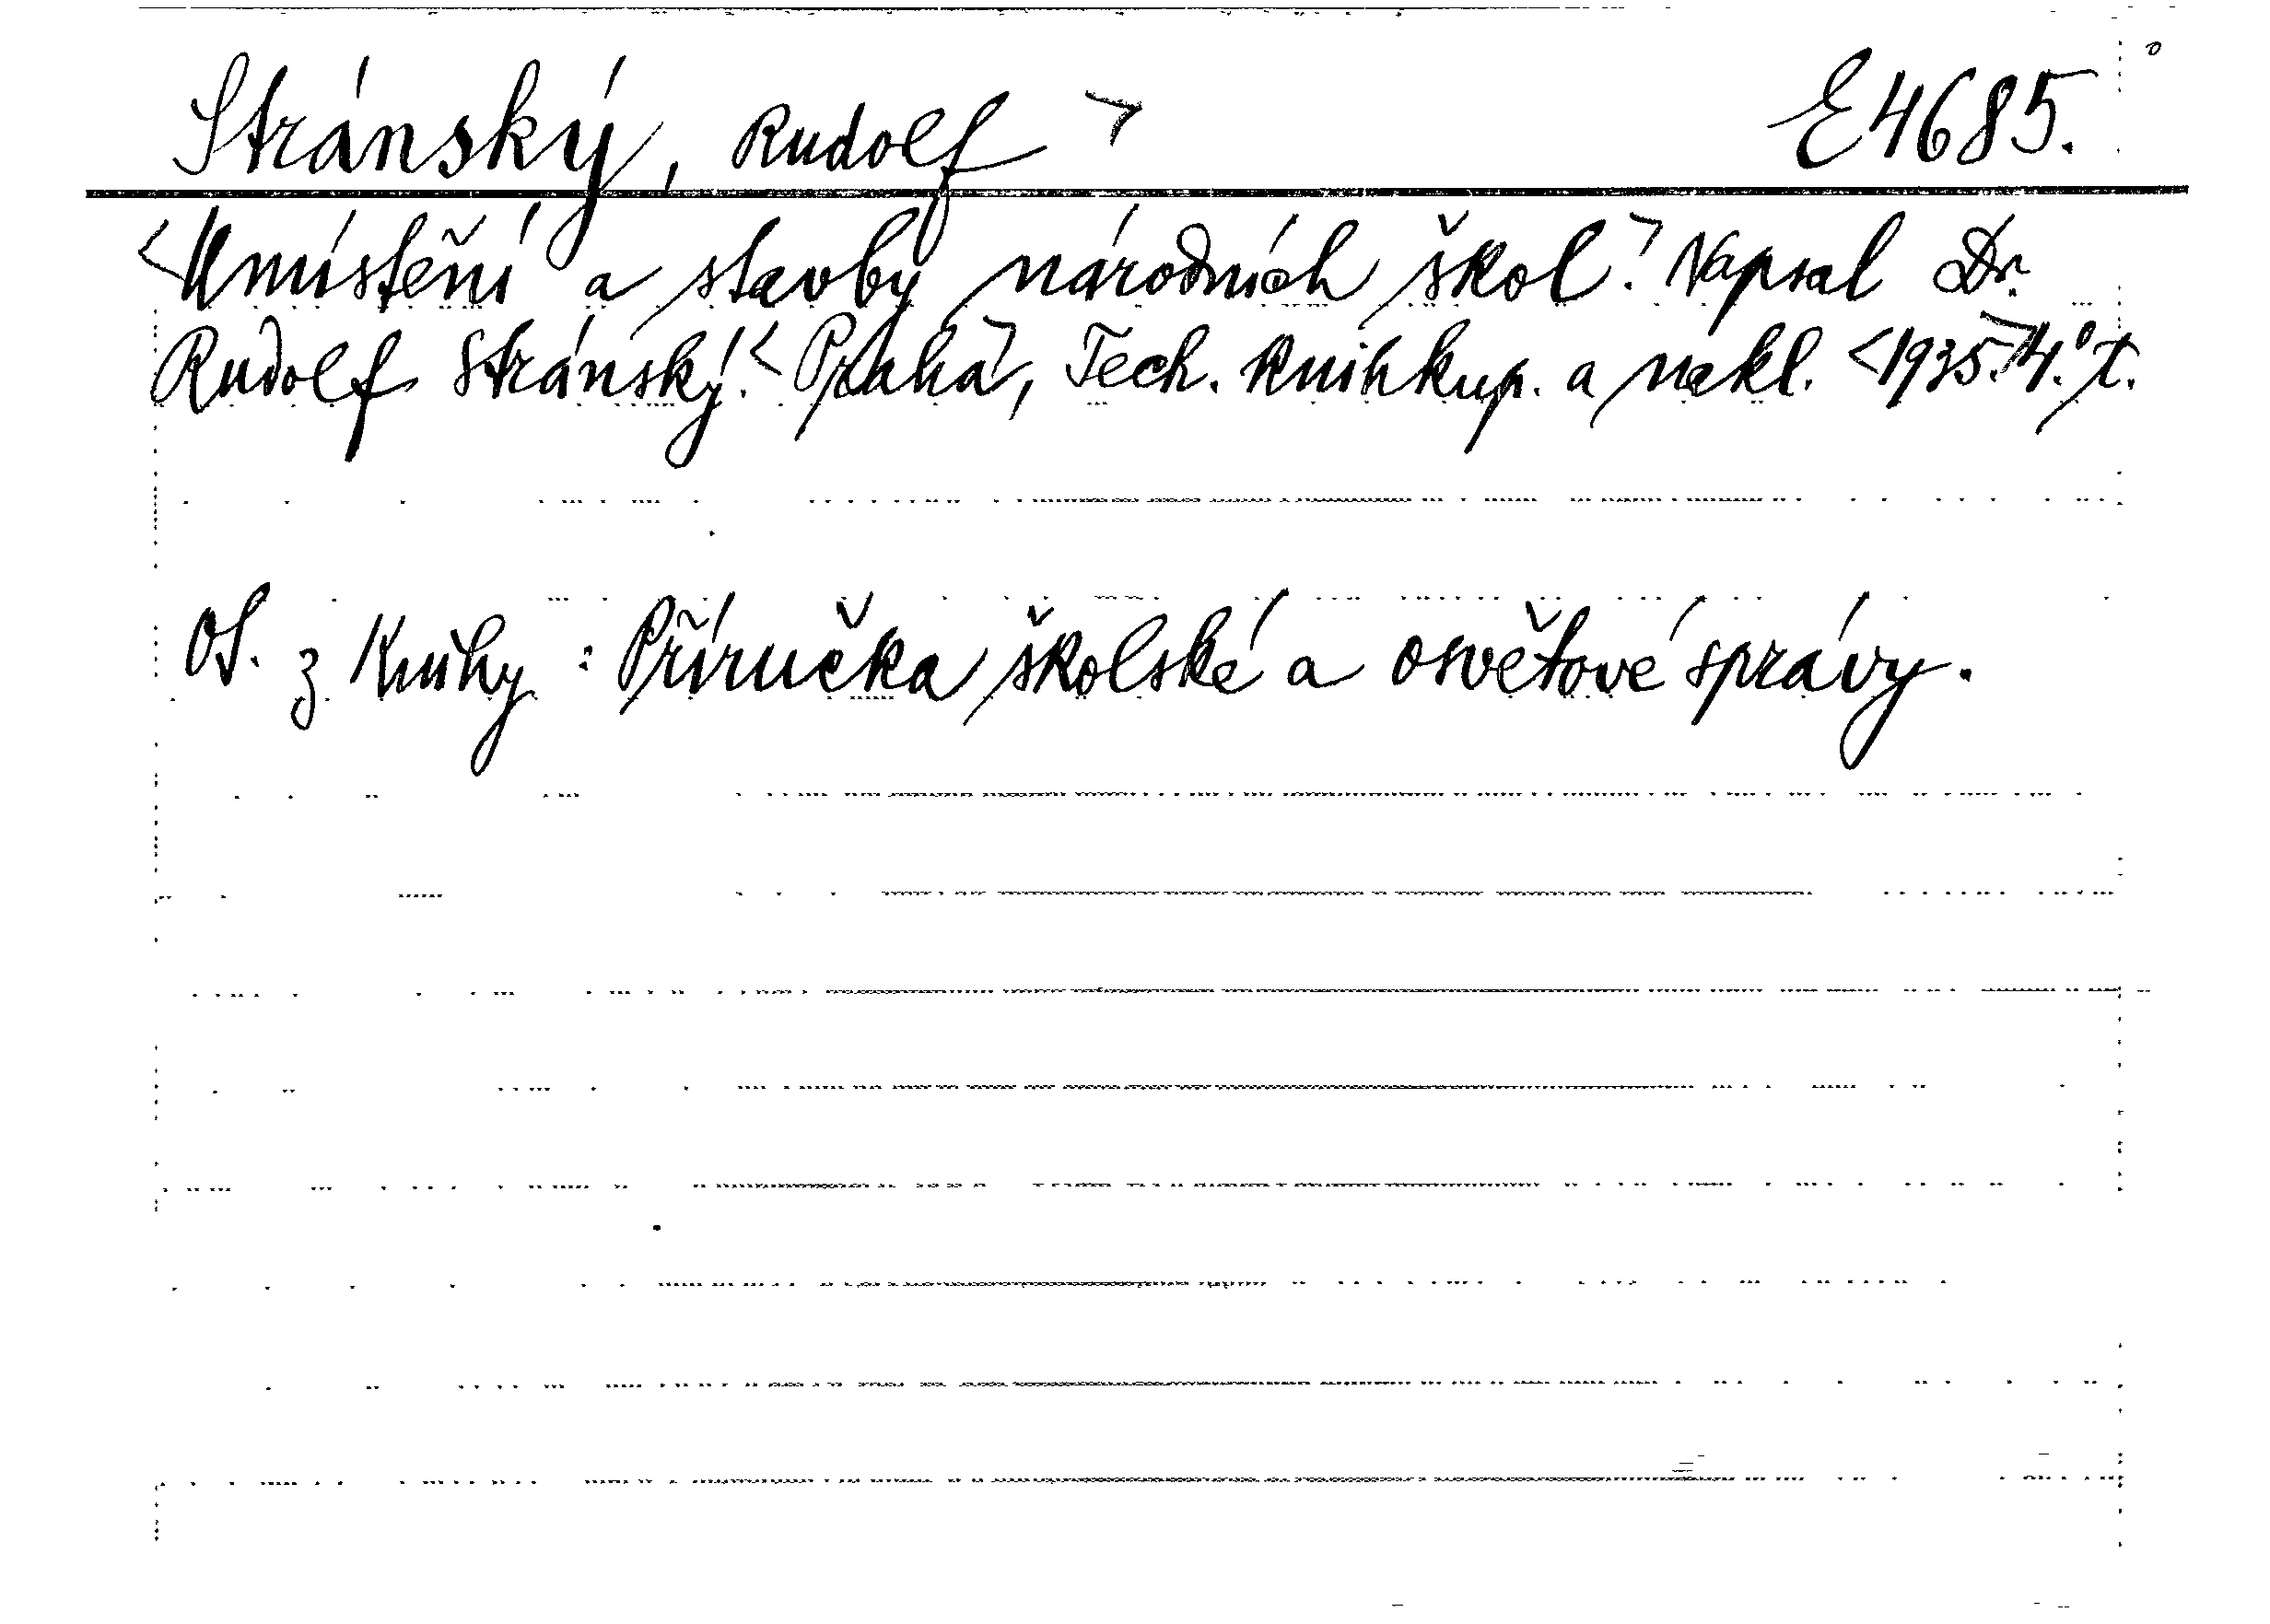 Stránský, Rudolf > E4685.
<Umístění a stavby národních škol.> Napsal Dr.
Rudolf Stránský. <Praha>, Tech. knihkup. a nakl. <1935.> 4.° t.
Ot. z knihy : Příručka školské a osvětové správy.